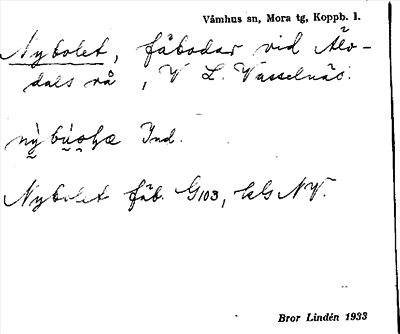 Våmhus sn, Mora tg, Koppb. l.
Nybolet, fäbodar vid Älv-
dals rå, V L. Vasselnäs.
Ind.
Nybolet fäb. G103, kls NV.
Bror Lindén 1933